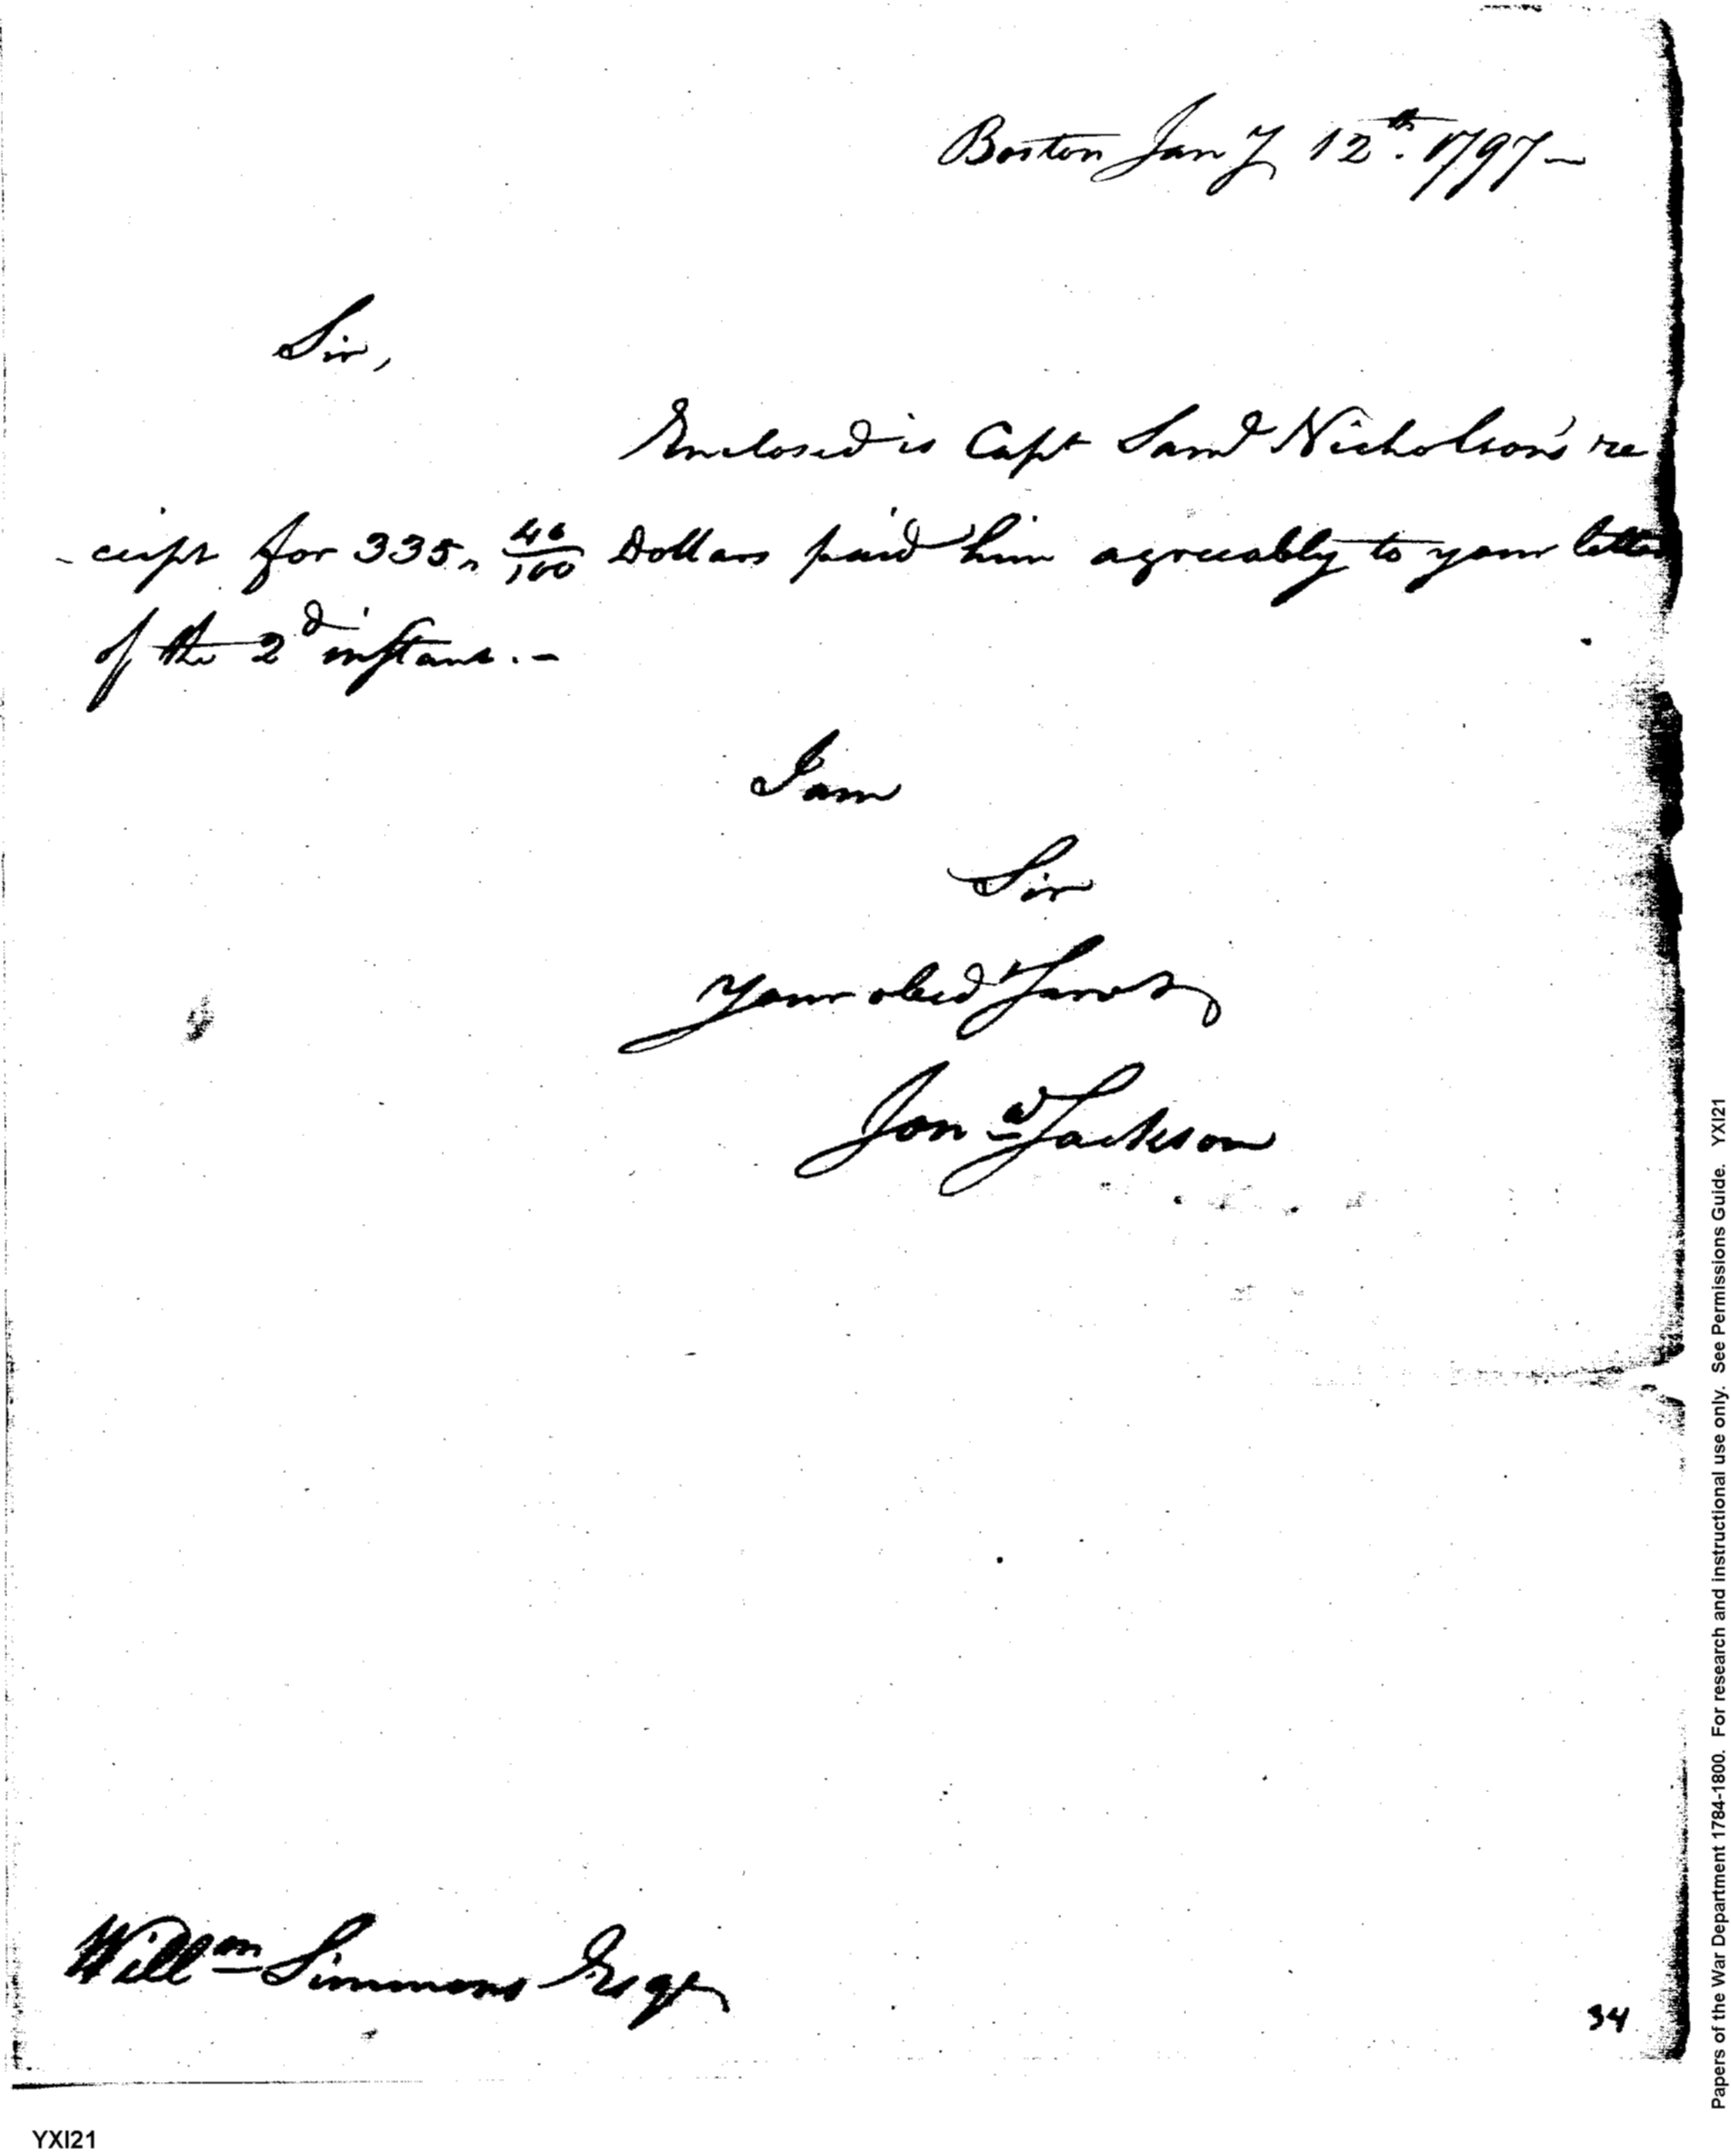 Boston Jany 12th. 1797—
Sir,
Enclosed is Capt Saml Nicholson's re
-ceipt for 335" 46/100 Dollars paid him agreeably to your letter
of the 2d instant.—
I am
Sir
Your obed Servt
Jona Jackson
Willm Simmons Esqr
34
YXI21
Papers of the War Department 1784-1800. For research and instructional use only. See Permissions Guide. YXI21